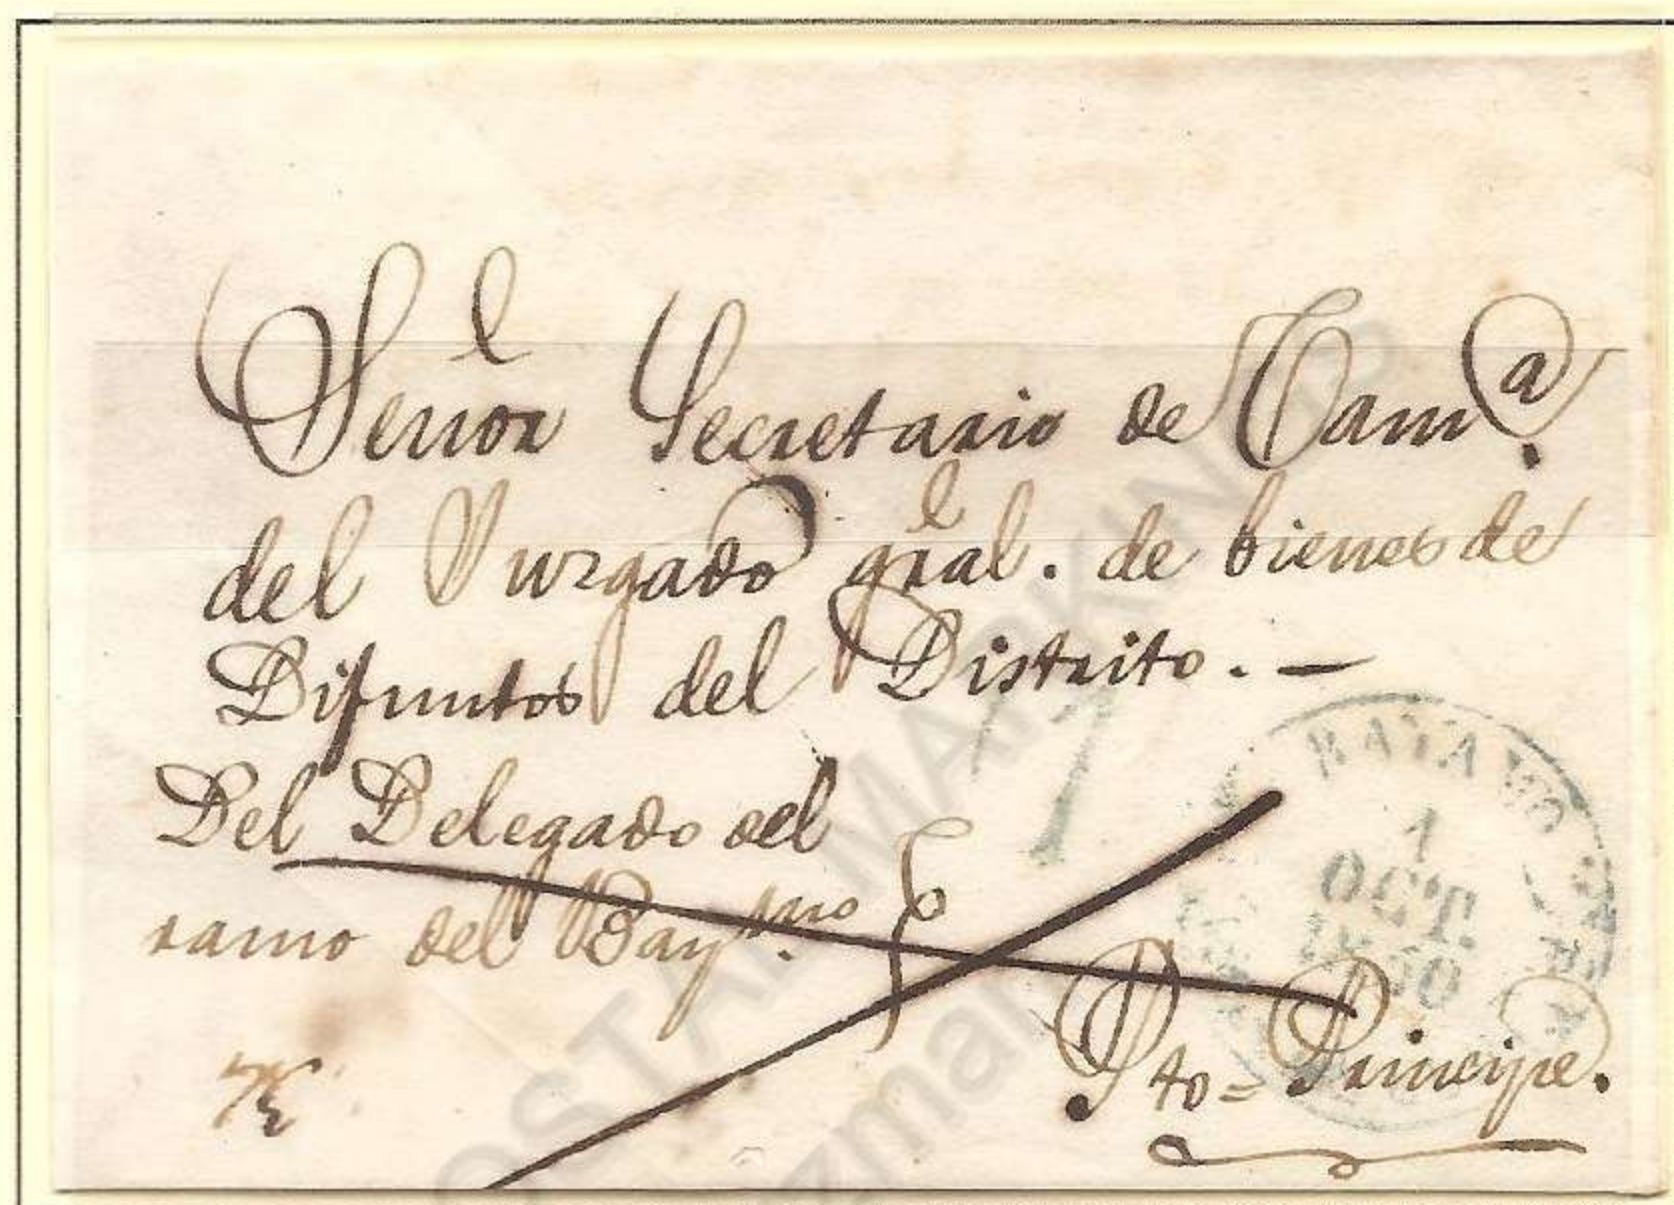 Señor Secretario de Cam.a
del Juzgado gral. de bienes de
Difuntos del Distrito. —
Del Delegado del
ramo del Bay.mo
Pto = Principe.
BAYAMO
1
OCT.
1850
POSTAL MARKINGS